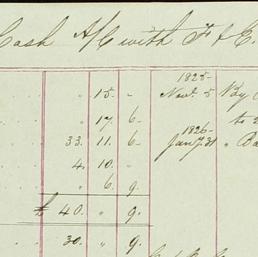 Cash A/C with F & E.
1825
" 15. " Novr. 5 By
" 17 6 to
1826
33. 11. 6 Jany. 31 " Ba
4. 10. "
" 6. 9.
£ 40. " 9.
30. " 9.